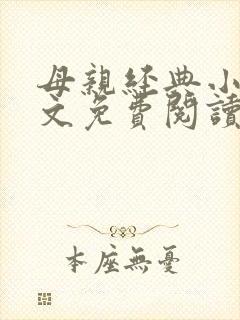 母親經典小
文免費閱讀
本座無憂